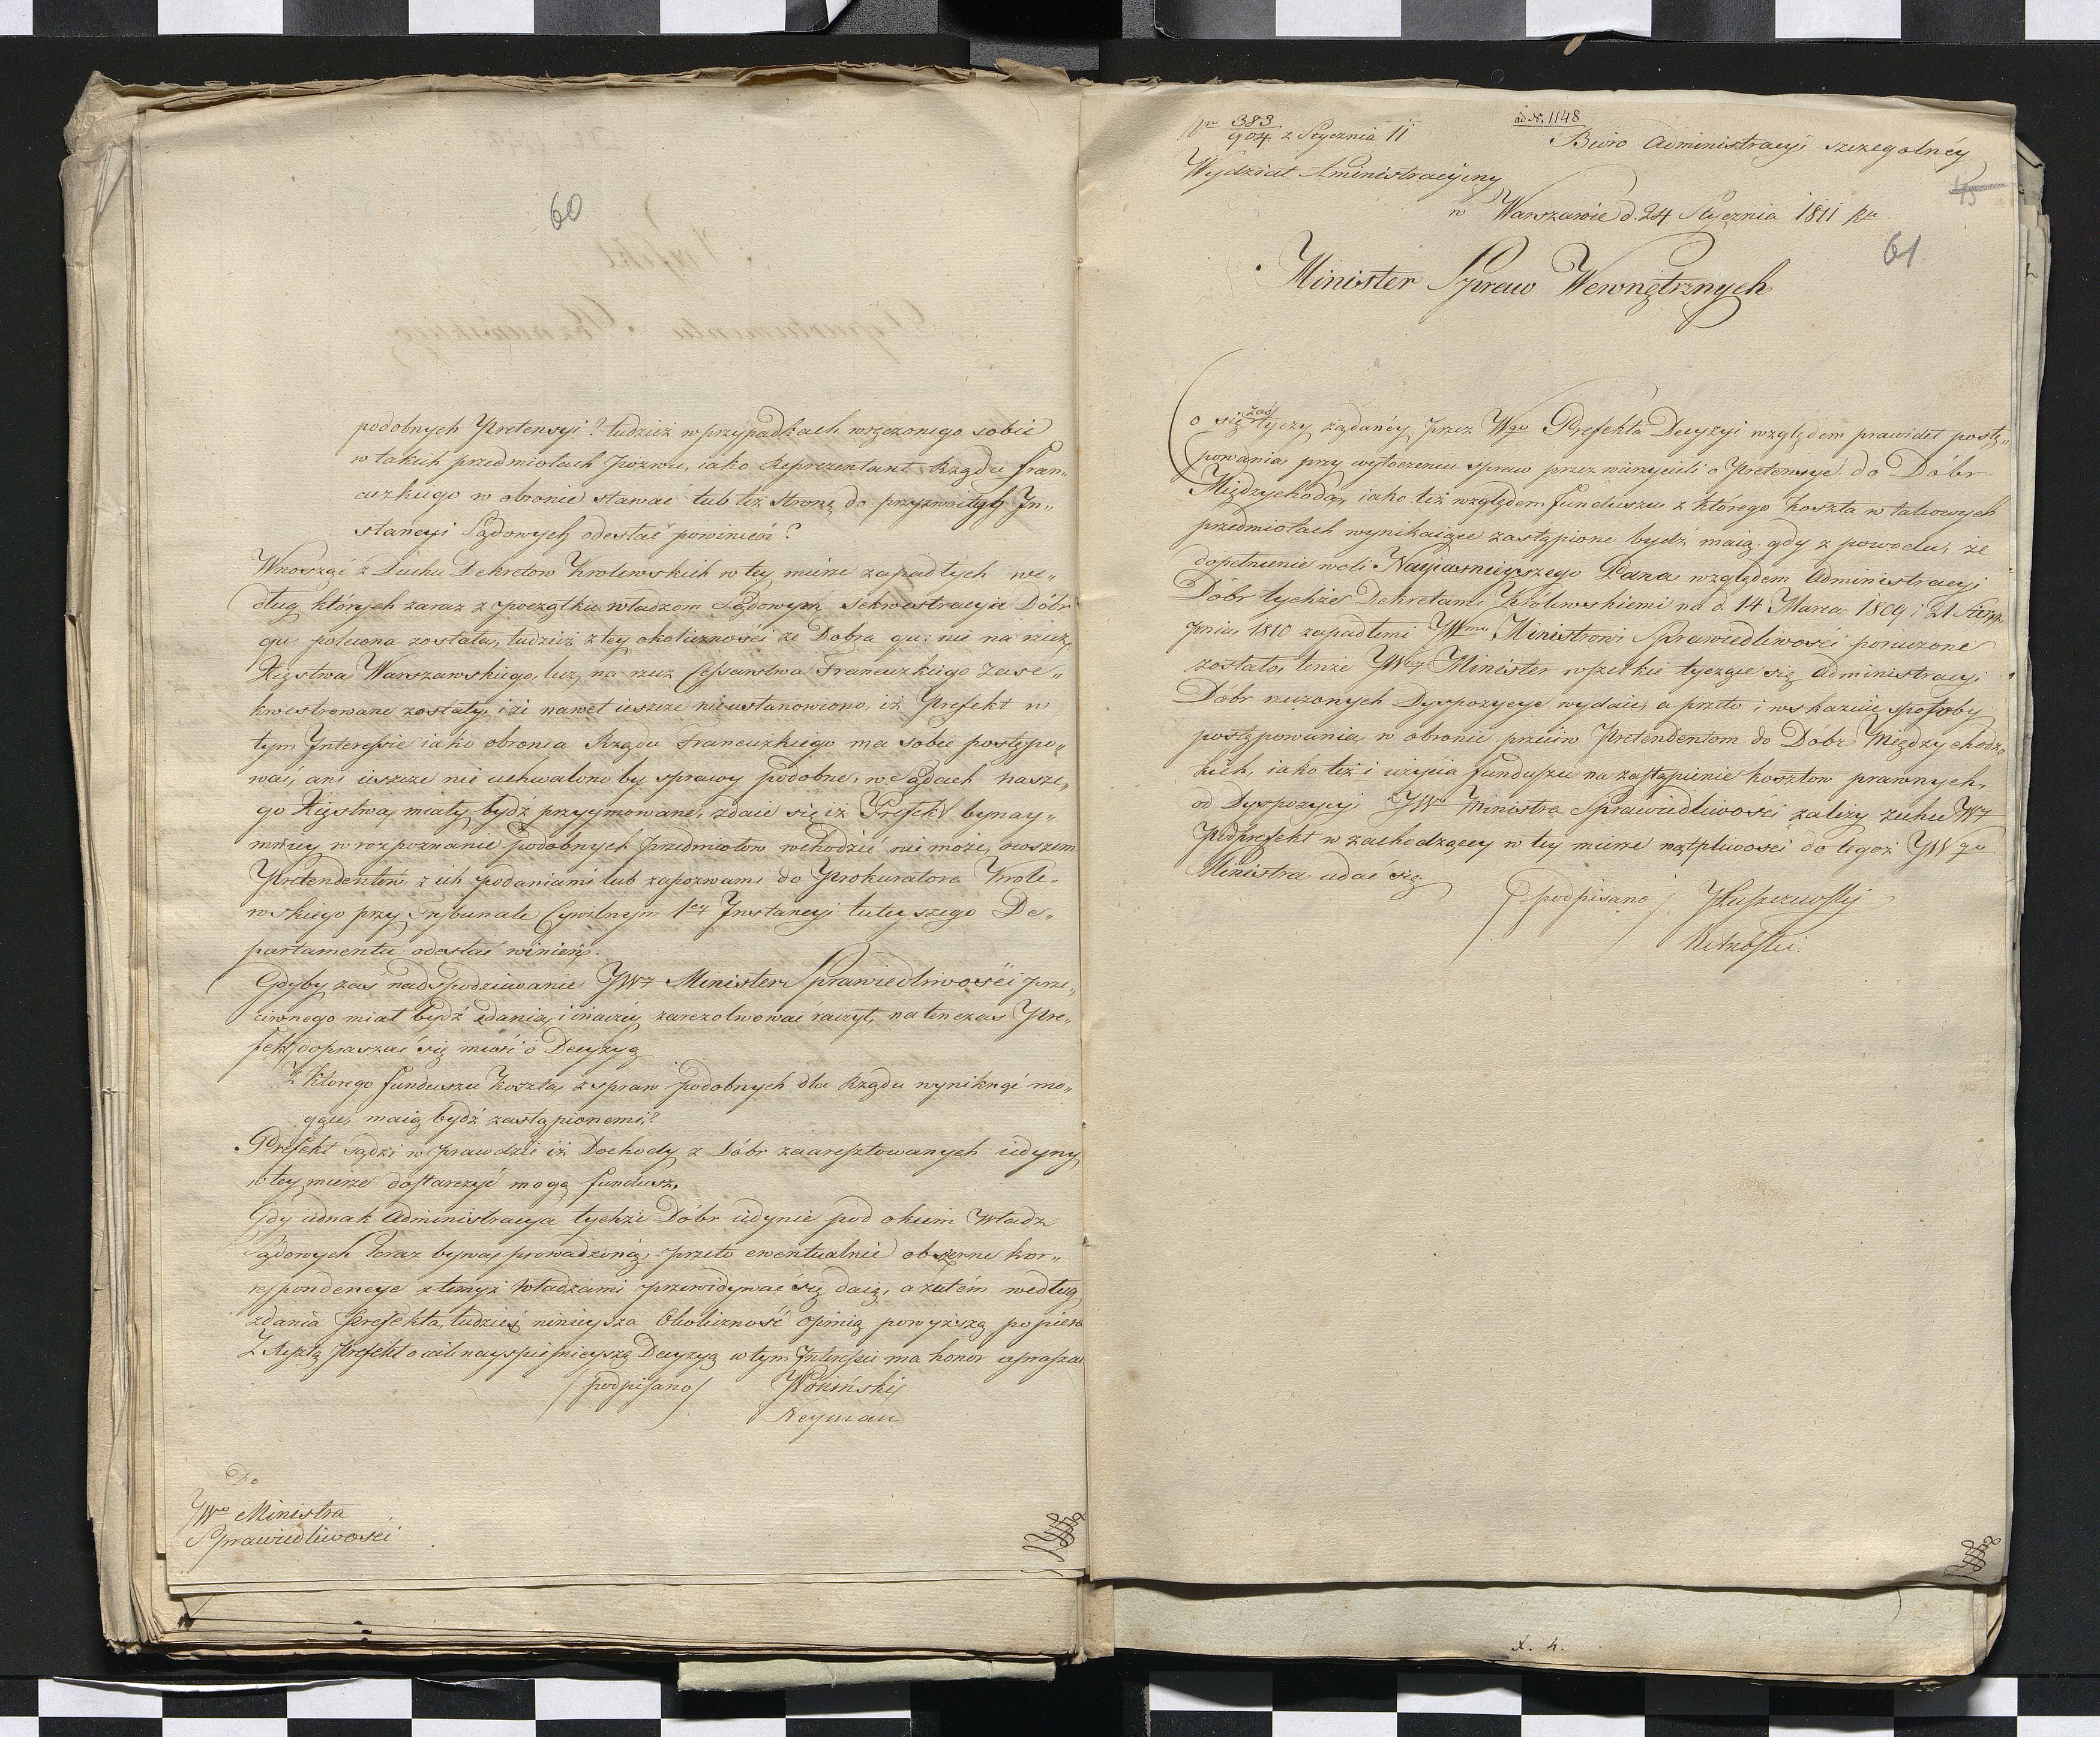 60
podobnych Pretensyi? tudzież w przypadkach wręczonego sobie
w takich przedmiotach pozwu, iako Reprezentant Rządu fran„
cuzkiego w obronie stawać lub też stronę do przyzwoitych In„
stancyi Sądowych odesłać powinien?
Wnosząć z Duchu Dekretow Krolewskich w tey mierze zapadłych we„
dług których zaraz z początku władzom Sądowym sekwestracyia Dóbr
qu: polecona została, tudzież z tey okoliczności że Dobra qu: nie na rzecz
Xięstwa Warszawskiego, lecz na rzecz Cessarstwa Francuzkiego zase„
kwestrowane zostały, i że nawet ieszcze nieustanowiono, iż Prefekt w
tym Interessie iako obronca Rządu Francuzkiego ma sobie postępo„
wać, ani ieszcze nie uchwalono by sprawy podobne, w Sądach nasze„
go Xięstwa miały bydź przyymowane, zdaie się iż Prefekt bynay„
mniey w rozpoznanie podobnych Przedmiotow wchodzić nie może, owszem
Pretendentow z ich podaniami lub zapozwami do Prokuratora Krole„
wskiego przy Trybunale Cywilnym 1ey Instancyi tuteyszego De„
partamentu odesłać winien.
Gdyby zas nadspodziewanie JWy Minister Sprawiedliwości prze„
ciwnego miał bydź zdania, i inaczey zarezolwować raczył, na ten czas Pre„
fekt dopraszać się musi o Decyzyą
Z ktorego funduszu Koszta, z spraw podobnych dla Rządu wyniknąć mo„
gące, maią bydź zastąpionemi?
Prefekt sądzi w prawdzie iż Dochody z Dóbr zaaresztowanych iedyny
w tey mierze dostarczyć mogą fundusz,
Gdy iednak Administracya tychże Dóbr iedynie pod okiem Władz
Sądowych teraz bywa prowadzoną, przeto ewentualnie obszerne kor„
respondencye z temyż Władzami przewidywać się daią, a zatém według
zdania Prefekta, tudzież ninieysza Okoliczność opinią powyższą popiera
Z Resztą Prefekt o iak nayspiesznieyszą Decyzyą w tym Interessie ma honor upraszać
/podpisano/ Poniński
Neyman
Do
JWo Ministra
Sprawiedliwości
383
904 z Stycznia 11
ad N. 1148
Biuro Administracyi szczegolnéy
Wydział Aministracyiny
w Warszawie d. 24 Stycznia 1811 Ru
61
Minister Spraw Wewnętrznych
Co się zaś tyczy żądanéy przez Wgo Prefekta Decyzyi względem prawideł postę„
powania przy wytoczeniu spraw przez wierzycieli o Pretensye do Dóbr
Międzychoda, iako też względem funduszu z którego koszta w takowych
przedmiotach wynikaiące zastąpione bydź maią. gdy z powodu, że
dopełnienie woli Nayiasnieyszego Pana względem Administracyi
Dóbr tychże Dekretami Królewskiemi na d. 14 Marca 1809 i 21 Sier„
pnia 1810 zapadłemi JWmu Ministrowi Sprawiedliwości poruczone
zostało, tenże JWny Minister wszelkie tyczące się Administracyi
Dóbr rzeczonych Dyspozycye wydaie, a przeto i wskazuie sposoby
postępowania w obronie przeciw Pretendentom do Dobr Międzychodz„
kich, iako też i użycia funduszu na zastąpienie kosztow prawnych,
od Dyspozycyi JWo Ministra Sprawiedliwości zależy zechce Wy
Podprefekt w zachodzącey w tey mierze wątpliwości do tegoż JWgo
Ministra udać się
/podpisano/. JŁuszczewski
X. 4.